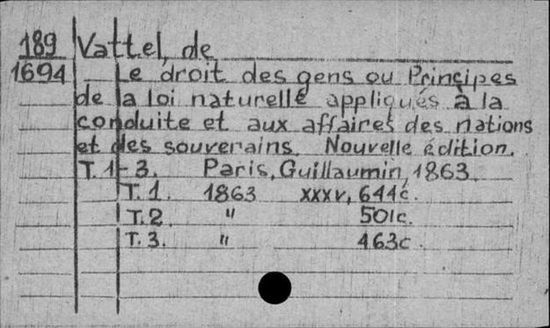 189 Vattel, de
1694 Le droit des gens ou Principes
de la loi naturelle appliqués à la
conduite et aux affaires des nations
et des souverains. Nouvelle édition.
T. 1-3. Paris, Guillaumin, 1863.
T. 1. 1863 xxxv, 644c.
T. 2 " 501c.
T. 3. " 463c.